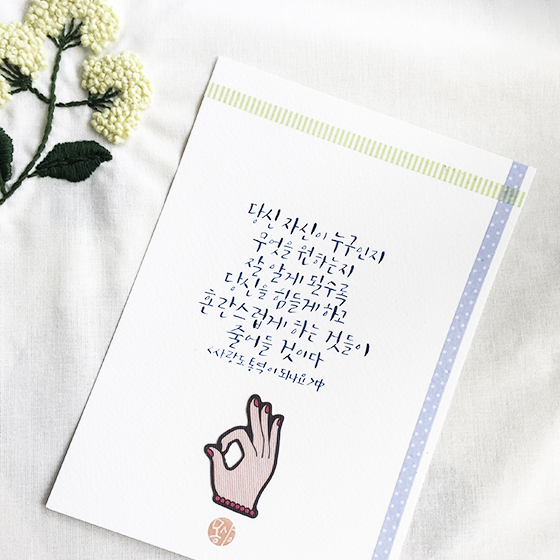 당신 자신이 누구인지
무엇을 원하는지
잘 알게 될수록
당신을 힘들게 하고
혼란스럽게 하는 것들이
줄어들 것이다
<사랑도 통역이 되나요> 中
몽상